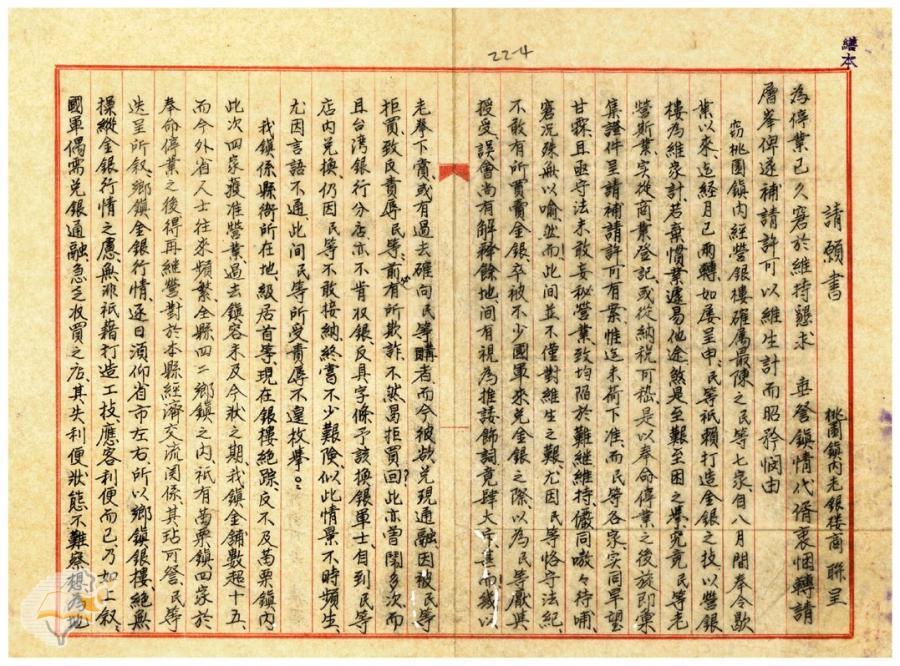 繕本
22-4
請願書
桃園鎮內老銀樓商 聯呈
為停業已久窘於維持懇求 垂詧鎮情代偕衷悃轉請
層峯俾遂補請許可以維生計而昭矜憫由
竊桃園鎮內經營銀樓確屬最陳之民等七家自八月間奉令歇
業以來、迄經月已兩轉、如屢呈申、民等祇賴打造金銀之技、以營銀
樓為維家計若棄慣業遽易他途、煞是至艱至困之業究竟民等老
營斯業实從商業登記或從納税可稽是以奉命停業之後旋即彙
集證件呈請補請許可有案、惟迄未荷下准、而民等各家实同旱望
甘霖、且亟守法未敢妄秘營業致均陷於難継維持儼同嗷々待哺、
窘况殊難以喻、然而此间並不僅對維生之艱、尤因民等恪守法紀、
不敢有所賣買金銀卒被不少國軍來兑金銀之際、以為民等厭與
授受、誤會尚有解釋餘地、间有視為推諉飾詞、竟肆大而幾以
老拳下賞、或有過去確向民等購者、而今被欲兑現通融、因被民等
拒買、致反責辱民等、前有所欺詐、不然易拒買回?此亦嘗鬧多次、而
且台灣銀行分店亦不肯収銀反具字條予該換銀軍士、自到民等
店内兑换、仍因民等不敢接納、終嘗不少艱险、似此情景不時頻生、
尤因言語不通、此间民等所受責辱不遑枚舉。
我鎮係縣衙所在地、級居首等、現在銀樓絶跡反不及苗栗鎮内
此次四家獲准營業、過去鎮容未及今狀之期、我鎮金鋪數超十五、
而今外省人士往來頻繁、全縣四二鄉鎮之内、祇有苗栗鎮四家於
奉命停業之後得再継營對於本縣經濟交流関係其玷可詧、民等
迭呈所叙、鄉鎮金銀行情、逐日須仰省市左右、所以鄉鎮銀樓絶無
操縱金銀行情之慮、無非祇藉打造工技、應客利便而已乃如上叙、
國軍偶需兑銀通融、急乏收買之店、其失利便、狀態不難察想、為此